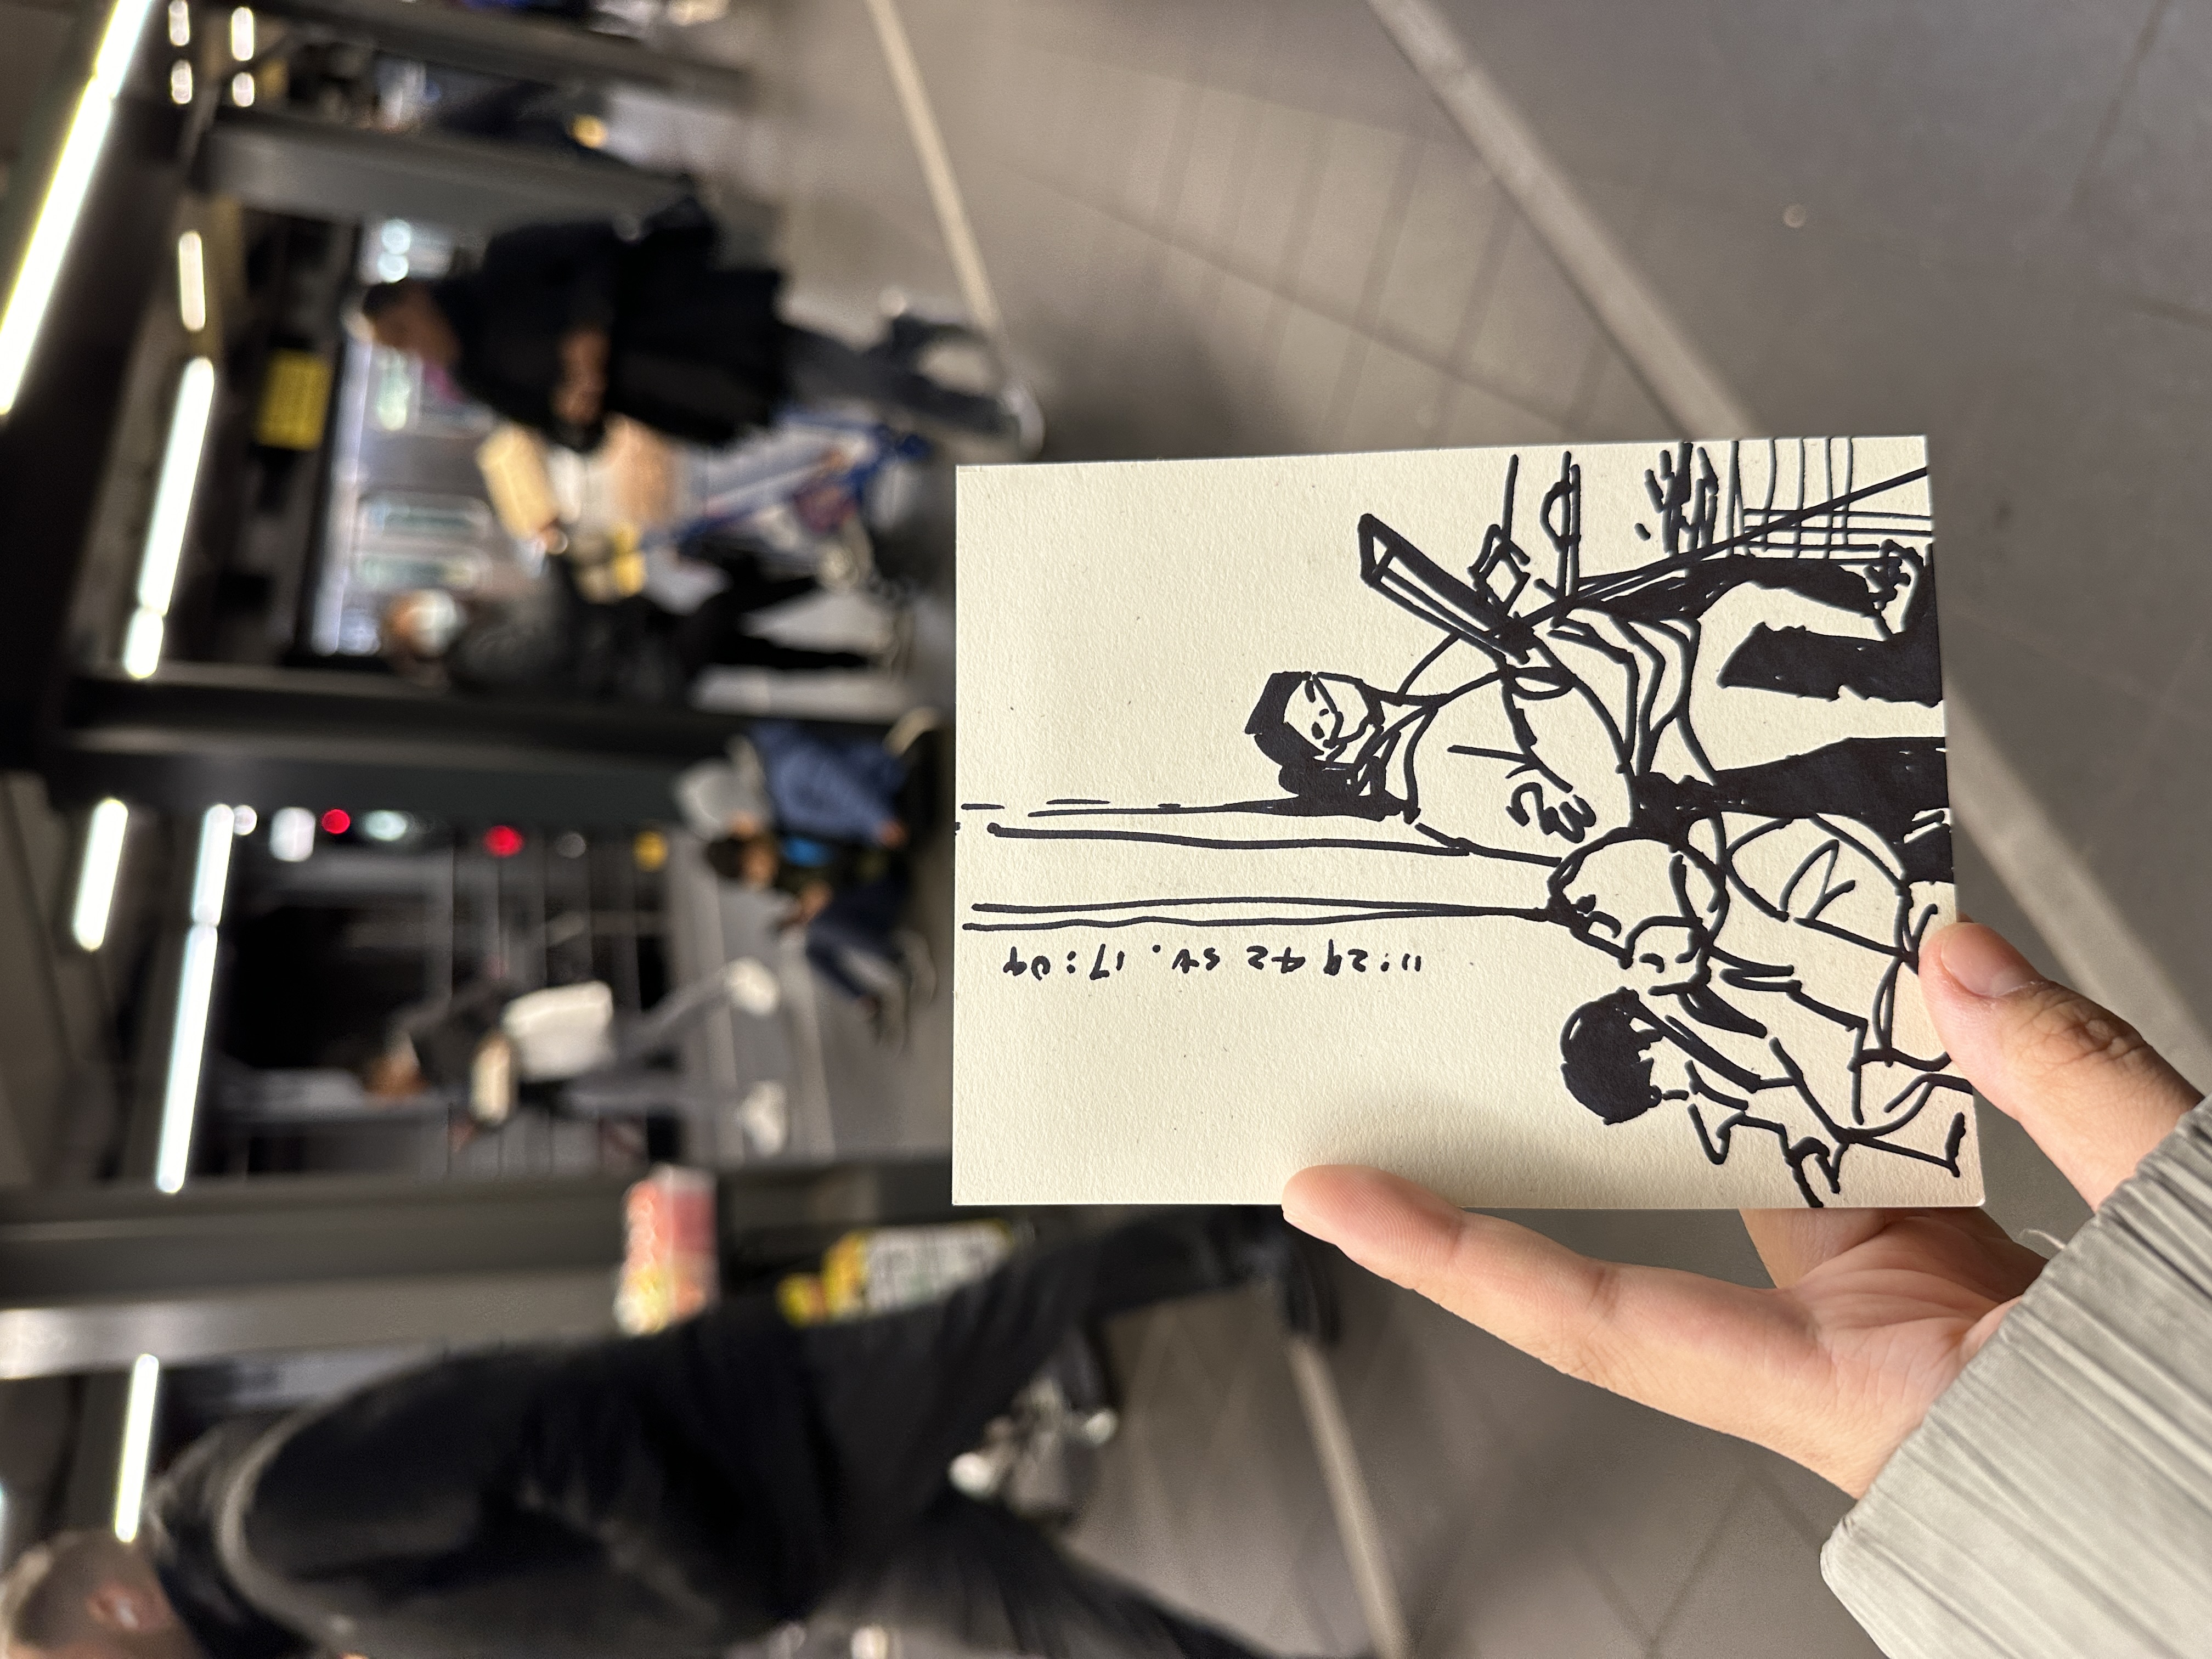 11:29 42 st. 17:04